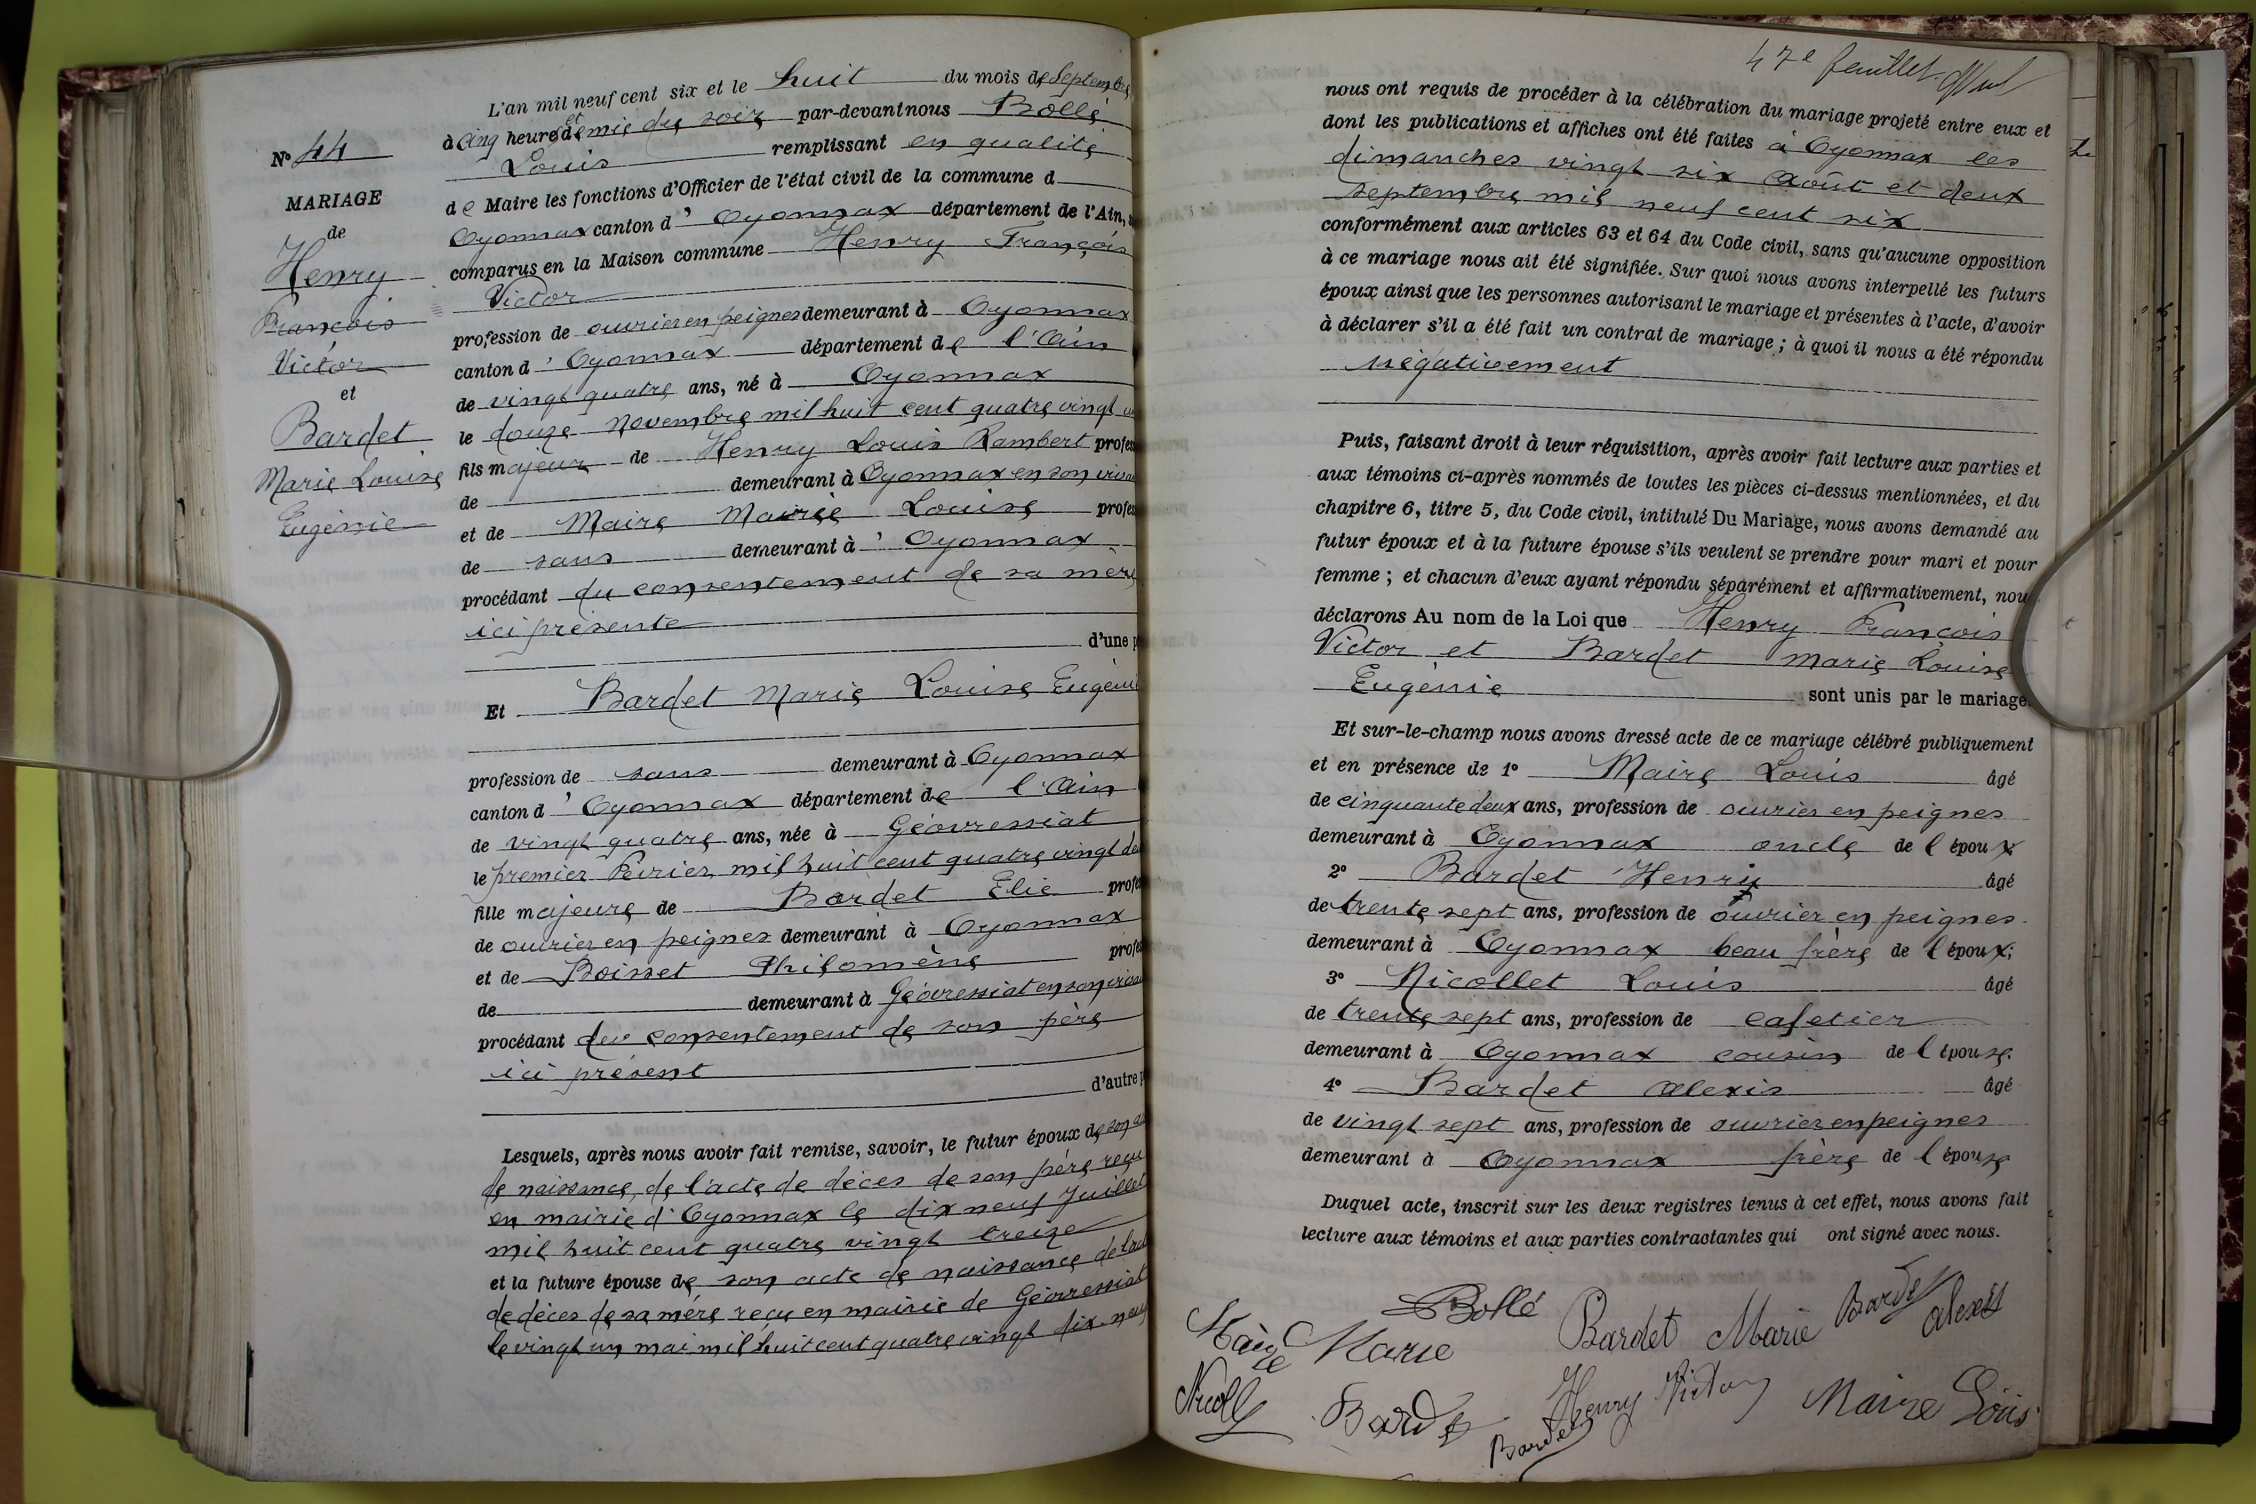 N° 44
MARIAGE
de
Henry
François
Victor
et
Bardet
Marie Louise
Eugénie
L'an mil neuf cent six et le huit du mois de Septembre
à cinq heures et demie du soir par-devant nous Bollé
Louis remplissant en qualité
de Maire les fonctions d'Officier de l'état civil de la commune d
Oyonnax canton d' Oyonnax département de l'Ain,
comparus en la Maison commune Henry François
Victor
profession de ouvrier en peignes demeurant à Oyonnax
canton d' Oyonnax département de l'Ain
de vingt quatre ans, né à Oyonnax
le douze Novembre mil huit cent quatre vingt un
fils majeur de Henry Louis Rambert profes
de demeurant à Oyonnax en son vivant
et de Maire Marie Louise profes
de sans demeurant à Oyonnax
procédant du consentement de sa mère
ici présente
d'une p
Et Bardet Marie Louise Eugénie
profession de sans demeurant à Oyonnax
canton d' Oyonnax département de l'Ain
de vingt quatre ans, née à Géovressiat
le premier Février mil huit cent quatre vingt deux
fille majeure de Bardet Elie profes
de ouvrier en peignes demeurant à Oyonnax
et de Boisset Philomène profes
de demeurant à Géovressiat en son vivant
procédant du consentement de son père
ici présent
d'autre p
Lesquels, après nous avoir fait remise, savoir, le futur époux de son acte
de naissance, de l'acte de décès de son père reçu
en mairie d'Oyonnax le dix neuf Juillet
mil huit cent quatre vingt treize
et la future épouse de son acte de naissance de l'acte
de décès de sa mère reçu en mairie de Géovressiat
le vingt un mai mil huit cent quatre vingt dix neuf
47e feuillet
nous ont requis de procéder à la célébration du mariage projeté entre eux et
dont les publications et affiches ont été faites à Oyonnax les
dimanches vingt six Août et deux
Septembre mil neuf cent six
conformément aux articles 63 et 64 du Code civil, sans qu'aucune opposition
à ce mariage nous ait été signifiée. Sur quoi nous avons interpellé les futurs
époux ainsi que les personnes autorisant le mariage et présentes à l'acte, d'avoir
à déclarer s'il a été fait un contrat de mariage ; à quoi il nous a été répondu
négativement
Puis, faisant droit à leur réquisition, après avoir fait lecture aux parties et
aux témoins ci-après nommés de toutes les pièces ci-dessus mentionnées, et du
chapitre 6, titre 5, du Code civil, intitulé Du Mariage, nous avons demandé au
futur époux et à la future épouse s'ils veulent se prendre pour mari et pour
femme ; et chacun d'eux ayant répondu séparément et affirmativement, nous
déclarons Au nom de la Loi que Henry François
Victor et Bardet Marie Louise
Eugénie sont unis par le mariage.
Et sur-le-champ nous avons dressé acte de ce mariage célébré publiquement
et en présence de 1° Maire Louis âgé
de cinquante deux ans, profession de ouvrier en peignes
demeurant à Oyonnax oncle de l'époux
2° Bardet Henri âgé
de trente sept ans, profession de ouvrier en peignes
demeurant à Oyonnax beau frère de l'époux;
3° Nicollet Louis âgé
de trente sept ans, profession de cafetier
demeurant à Oyonnax cousin de l'épouse.
4° Bardet Alexis âgé
de vingt sept ans, profession de ouvrier en peignes
demeurant à Oyonnax frère de l'épouse
Duquel acte, inscrit sur les deux registres tenus à cet effet, nous avons fait
lecture aux témoins et aux parties contractantes qui ont signé avec nous.
Bollé
Bardet Marie
Bardet Alexis
Marie
Bardet
Henry Victor
Maire Louis
Bardet